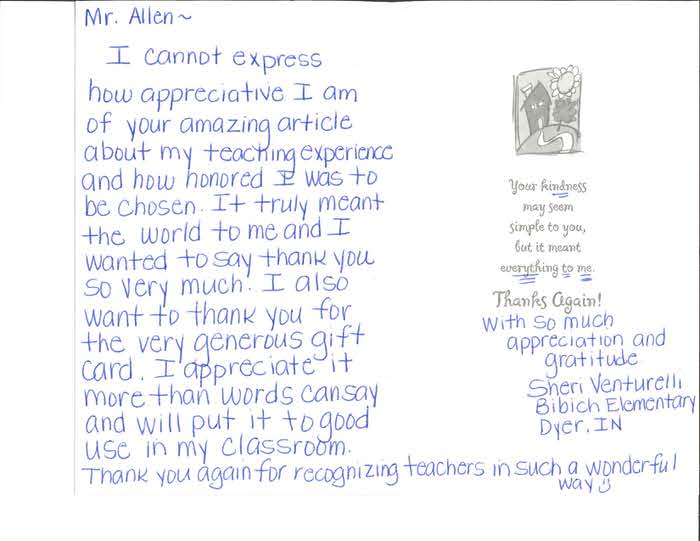 Mr. Allen~
I cannot express
how appreciative I am
of your amazing article
about my teaching experience
and how honored I was to
be chosen. It truly meant
the world to me and I
wanted to say thank you
so very much. I also
want to thank you for
the very generous gift
card. I appreciate it
more than words can say
and will put it to good
use in my classroom.
Thank you again for recognizing teachers in such a wonderful
way
Your kindness
may seem
simple to you,
but it meant
everything to me.
Thanks Again!
With so much
appreciation and
gratitude
Sheri Venturelli
Bibich Elementary
Dyer, IN